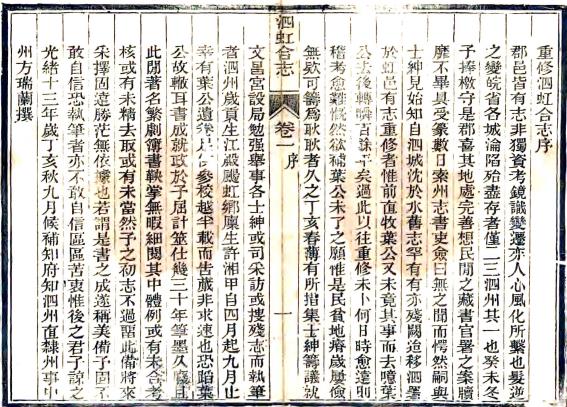 重修泗虹合志序
郡邑皆有志非獨資考鏡識變遷亦人心風化所繫也髮逆
之變皖省各城淪陷殆盡存者僅二三泗州其一也癸未冬
子捧檄守是郡喜其地處完善想民間之藏書官署之案牘
靡不畢具受篆數日索州志書吏僉曰無之聞而愕然嗣與
士紳見始知自泗城沈於水舊志罕有有亦殘闕迨移泗署
於虹邑有志重修者惟前直牧葉公又未竟其事而去噫葉
公去後轉瞬百餘年矣過此以往重修未卜何日時愈遠則
稽考愈難慨然欲補葉公未了之願惟是民貧地瘠歲屢儉
無欵可籌為耿耿者久之丁亥春薄有所措集士紳籌議就
泗虹合志
卷一
序
一
文昌宮設局勉强舉事各士紳或司采訪或搜殘志而執筆
者泗州歲貢生江殿颺虹鄉廩生許湘甲自四月起九月止
幸有葉公遺參校越半載而告蕆非求速也恐蹈葉
公故轍耳書成就政於予屈計筮仕幾三十年筆墨久
此間著名繁劇簿書鞅掌無暇細閱其中體例或有未合考
核或有未精去取或有未當然予之初志不過聊此備將來
采擇固遠勝茫無依據也若謂是書之成遂稱美備予固不
敢自信恐執筆者亦不敢自信區區苦衷惟後之君子諒之
光緒十三年歲丁亥秋九月候補知府知泗州直隸州事中
州方瑞蘭撰